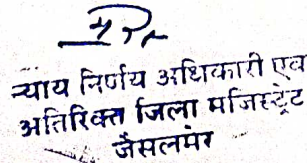 न्याय निर्णय अधिकारी एव
अतिरिक्त जिला मजिस्ट्रेट
जैसलमेर